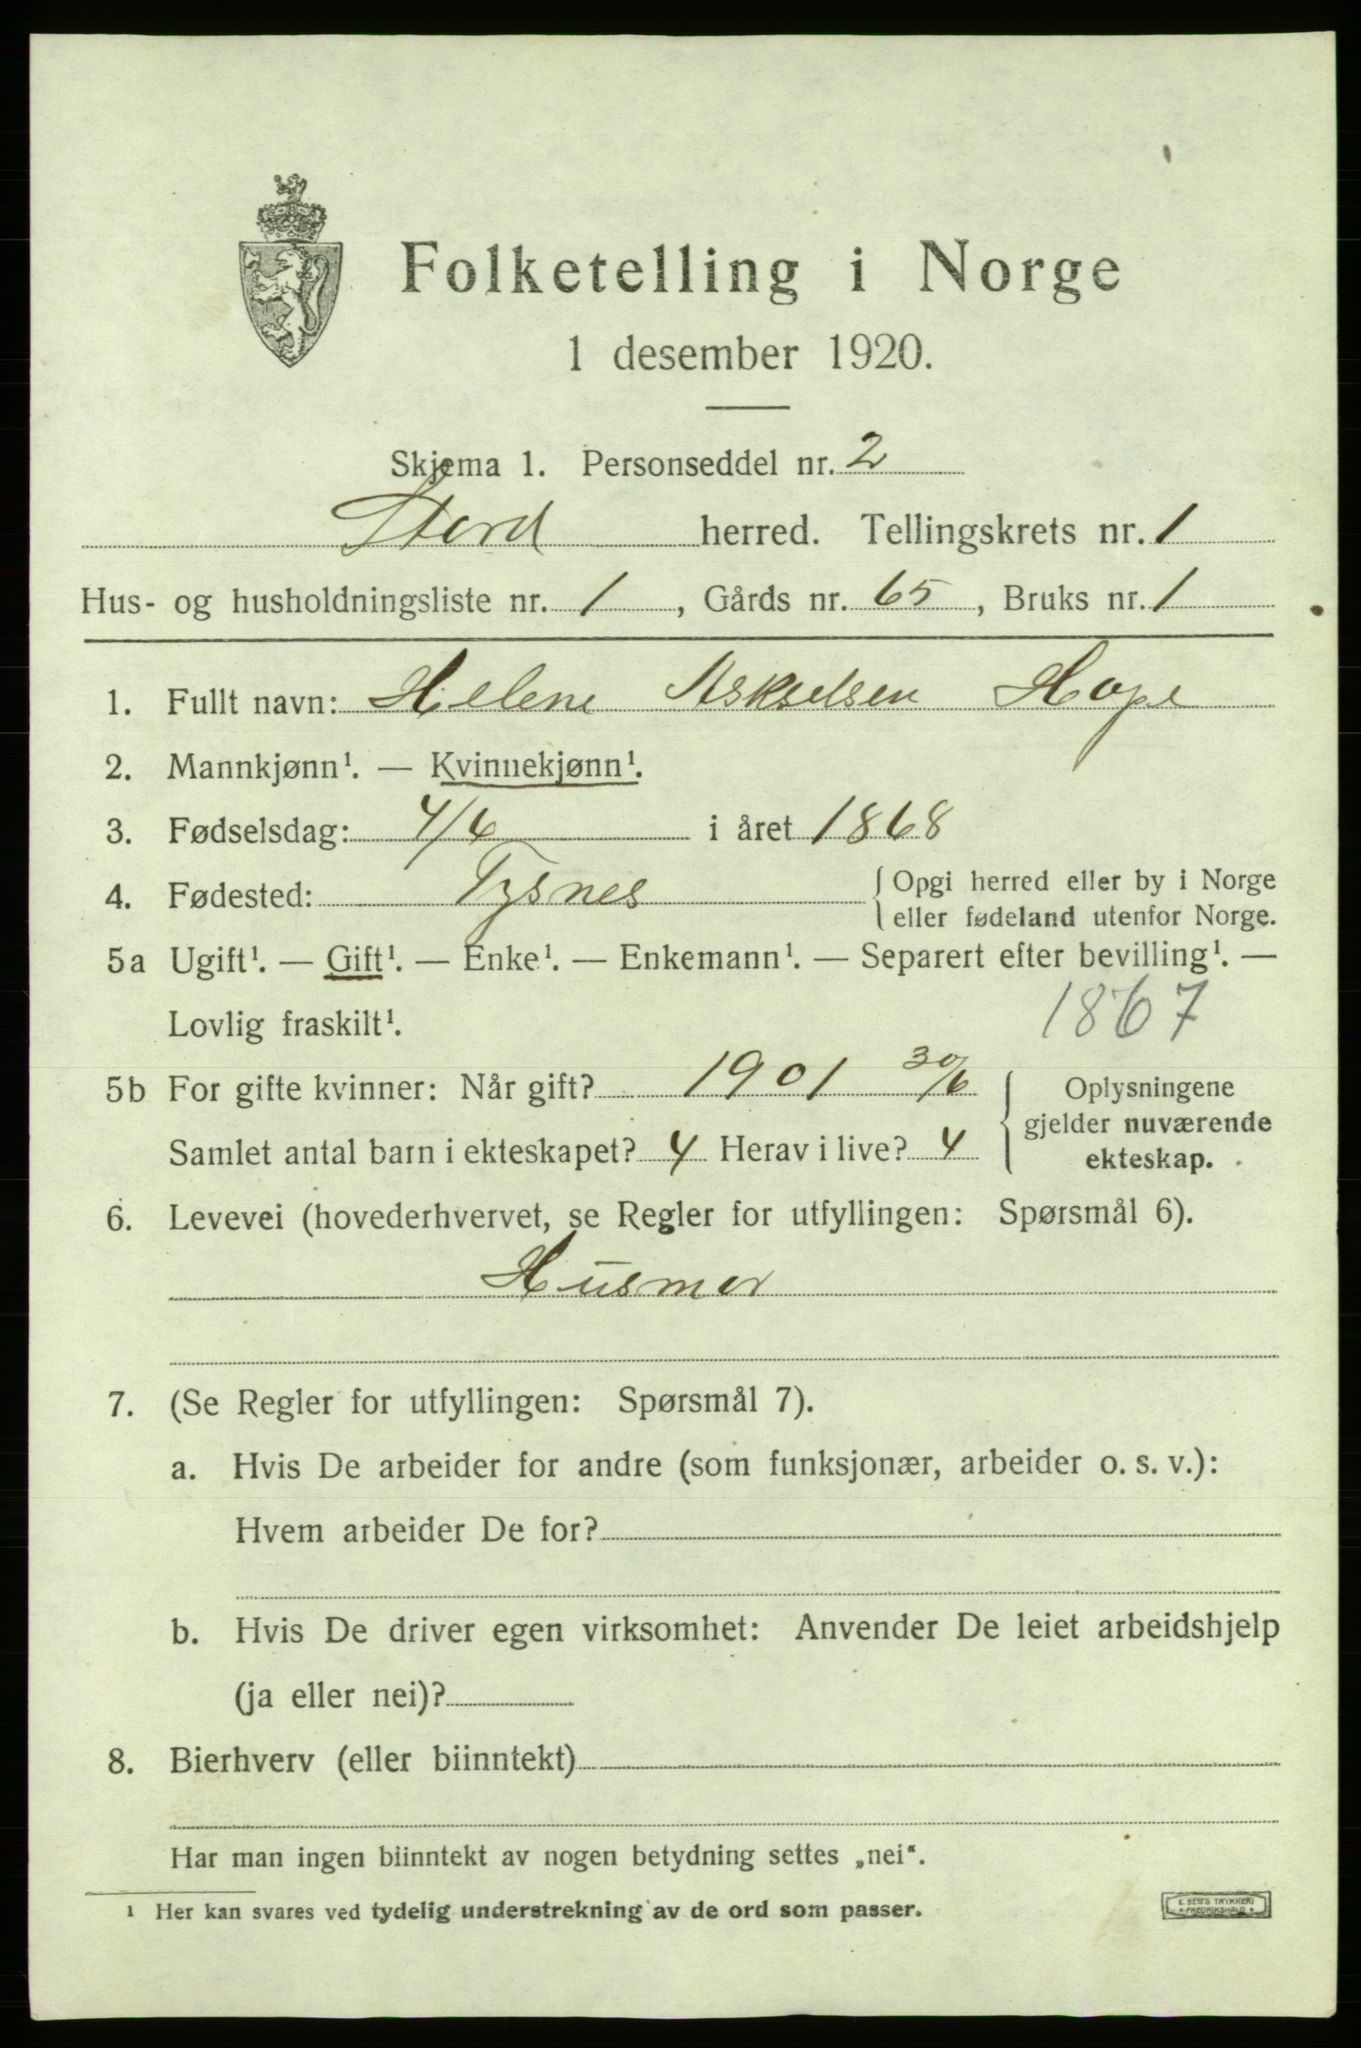 Folketelling i Norge
1 desember 1920.
Skjema 1. Personseddel nr. 2
Stord herred. Tellingskrets nr. 1
Hus- og husholdningsliste nr. 1, Gårds nr. 65, Bruks nr. 1
1. Fullt navn: Helene Askselsen Hope
2. Mannkjønn¹. — Kvinnekjønn¹.
3. Fødselsdag: 4/6 i året 1868
4. Fødested: Tysnes {Opgi herred eller by i Norge
eller fødeland utenfor Norge.
5a Ugift¹. — Gift¹. — Enke¹. — Enkemann¹. — Separert efter bevilling¹. —
Lovlig fraskilt¹. 1867
5b For gifte kvinner: Når gift? 1901 30/6 { Oplysningene
gjelder nuværende
Samlet antal barn i ekteskapet? 4 Herav i live? 4 ekteskap.
6. Levevei (hovederhvervet, se Regler for utfyllingen: Spørsmål 6).
Husmor
7. (Se Regler for utfyllingen: Spørsmål 7).
a. Hvis De arbeider for andre (som funksjonær, arbeider o. s. v.):
Hvem arbeider De for?
b. Hvis De driver egen virksomhet: Anvender De leiet arbeidshjelp
(ja eller nei)?
8. Bierhverv (eller biinntekt)
Har man ingen biinntekt av nogen betydning settes „nei“.
¹ Her kan svares ved tydelig understrekning av de ord som passer.
E. SEM'S TRYKKERI
* FREDRIKSHALD *